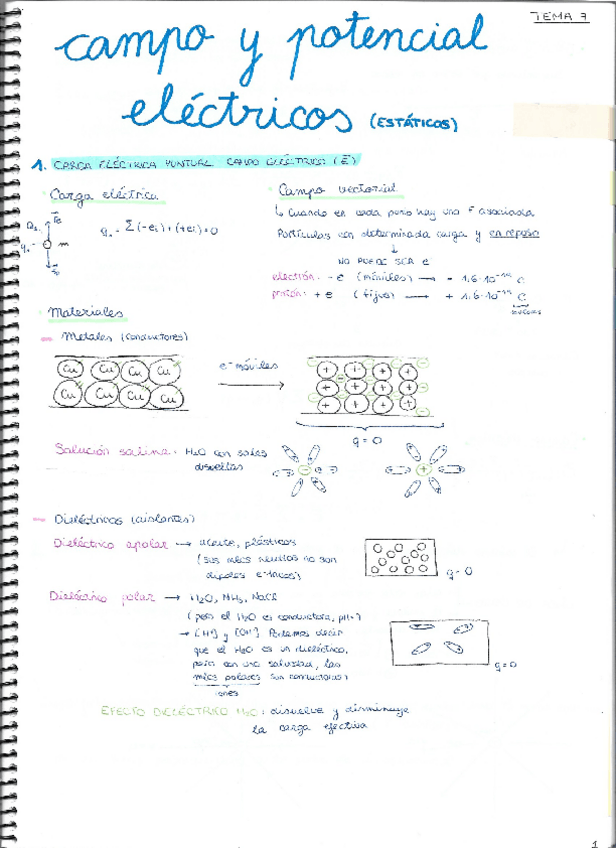 TEMA 7
campo y potencial
eléctricos (ESTÁTICOS)
1. CARGA ELÉCTRICA PUNTUAL. CAMPO ELÉCTRICO (E)
Carga eléctrica
Campo vectorial
↳ Cuando en cada punto hay una F asociada
q = Σ(-ei)+(+ei)=0
m
Partículas con determinada carga y en reposo
↓
NO PUEDE SER e
electrón: -e (móviles) → -1,6·10⁻¹⁹ C
protón: +e (fijos) → +1,6·10⁻¹⁹ C
Materiales
- Metales (conductores)
Cu Cu Cu Cu
Cu Cu Cu Cu
e⁻ móviles
q = 0
Solución salina: H2O con sales
disueltas
- Dieléctricos (aislantes)
Dieléctrico apolar → aceite, plásticos
(sus mlcs neutros no son
dipolos)
q = 0
Dieléctrico polar → H2O, NH3, NaCl
(pero el H2O es conductora, pH=7
→ [H+] y [OH-]. Podemos decir
que el H2O es un dieléctrico,
pero con una salvedad, las
mlcs polares son conductoras)
iones
q = 0
EFECTO DIELÉCTRICO H2O: disuelve y disminuye
la carga efectiva
1